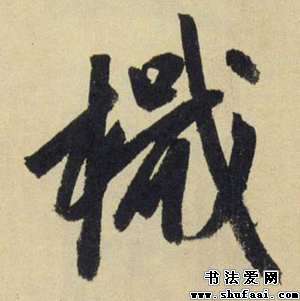 檝
书法爱网
www.shufaai.com